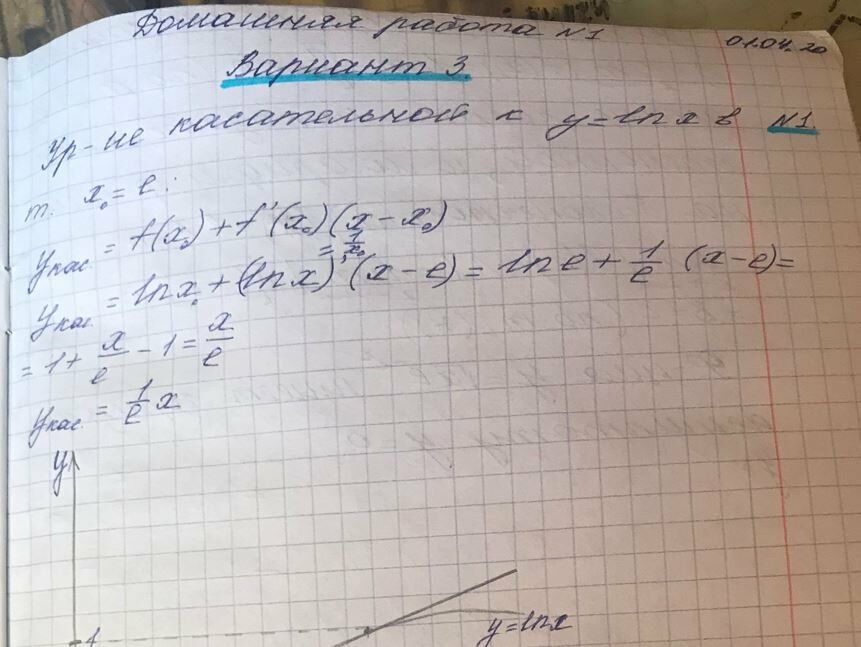 Домашняя работа N1
01.04.20
Вариант 3.
Ур-ие касательной к y=lnx в N1
т. x₀=e:
yкас. = f(x₀)+f'(x₀)(x-x₀)
=1/x₀
yкас. = lnx₀+(lnx)'(x-e)=lne+1/e (x-e)=
=1+x/e-1=x/e
yкас. = 1/e x
y
1
y=lnx